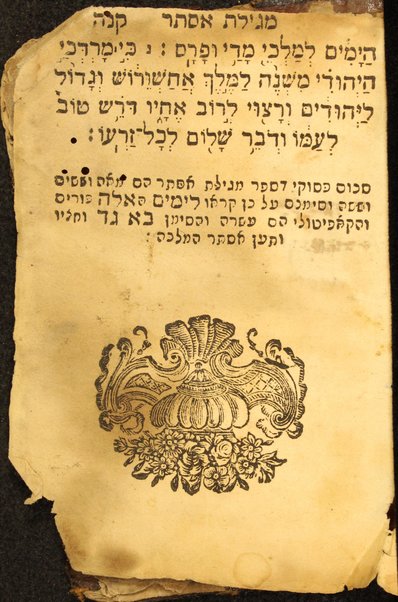 מגילת אסתר קנה
הַיָּמִים לְמַלְכֵי מָדַי וּפָרָס׃ נ כִּי־מָרְדֳּכַי
הַיְּהוּדִי מִשְׁנֶה לַמֶּלֶךְ אֲחַשְׁוֵרוֹשׁ וְגָדוֹל
לַיְּהוּדִים וְרָצוּי לְרוֹב אֶחָיו דֹּרֵשׁ טוֹב
לְעַמּוֹ וְדֹבֵר שָׁלוֹם לְכָל־זַרְעוֹ׃
סכום פסוקי דספר מגילת אסתר הם מאה וששים
וששה וסימנם על כן קראו לימים האלה פורים
והקאפיטולי הם עשרה והסימן בא גד וחציו
ותען אסתר המלכה׃